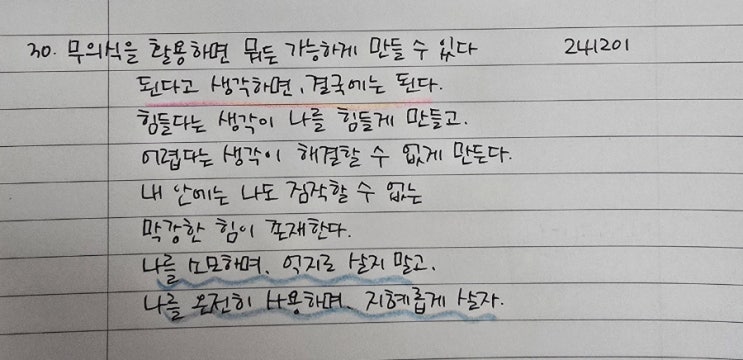 30. 무의식을 활용하면 뭐든 가능하게 만들 수 있다 241201
된다고 생각하면, 결국에는 된다.
힘들다는 생각이 나를 힘들게 만들고.
어렵다는 생각이 해결할 수 없게 만든다.
내 안에는 나도 짐작할 수 없는
막강한 힘이 존재한다.
나를 소모하며, 억지로 살지 말고.
나를 온전히 사용하며, 지혜롭게 살자.